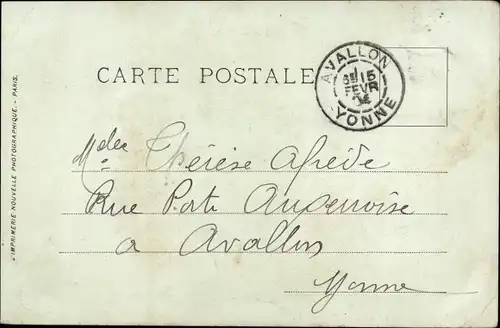 CARTE POSTALE
AVALLON
6E 15
FEVR
04
YONNE
Melle Thérèse
Rue Porte Auxerroise
à Avallon
Yonne
L'IMPRIMERIE NOUVELLE PHOTOGRAPHIQUE. - PARIS.